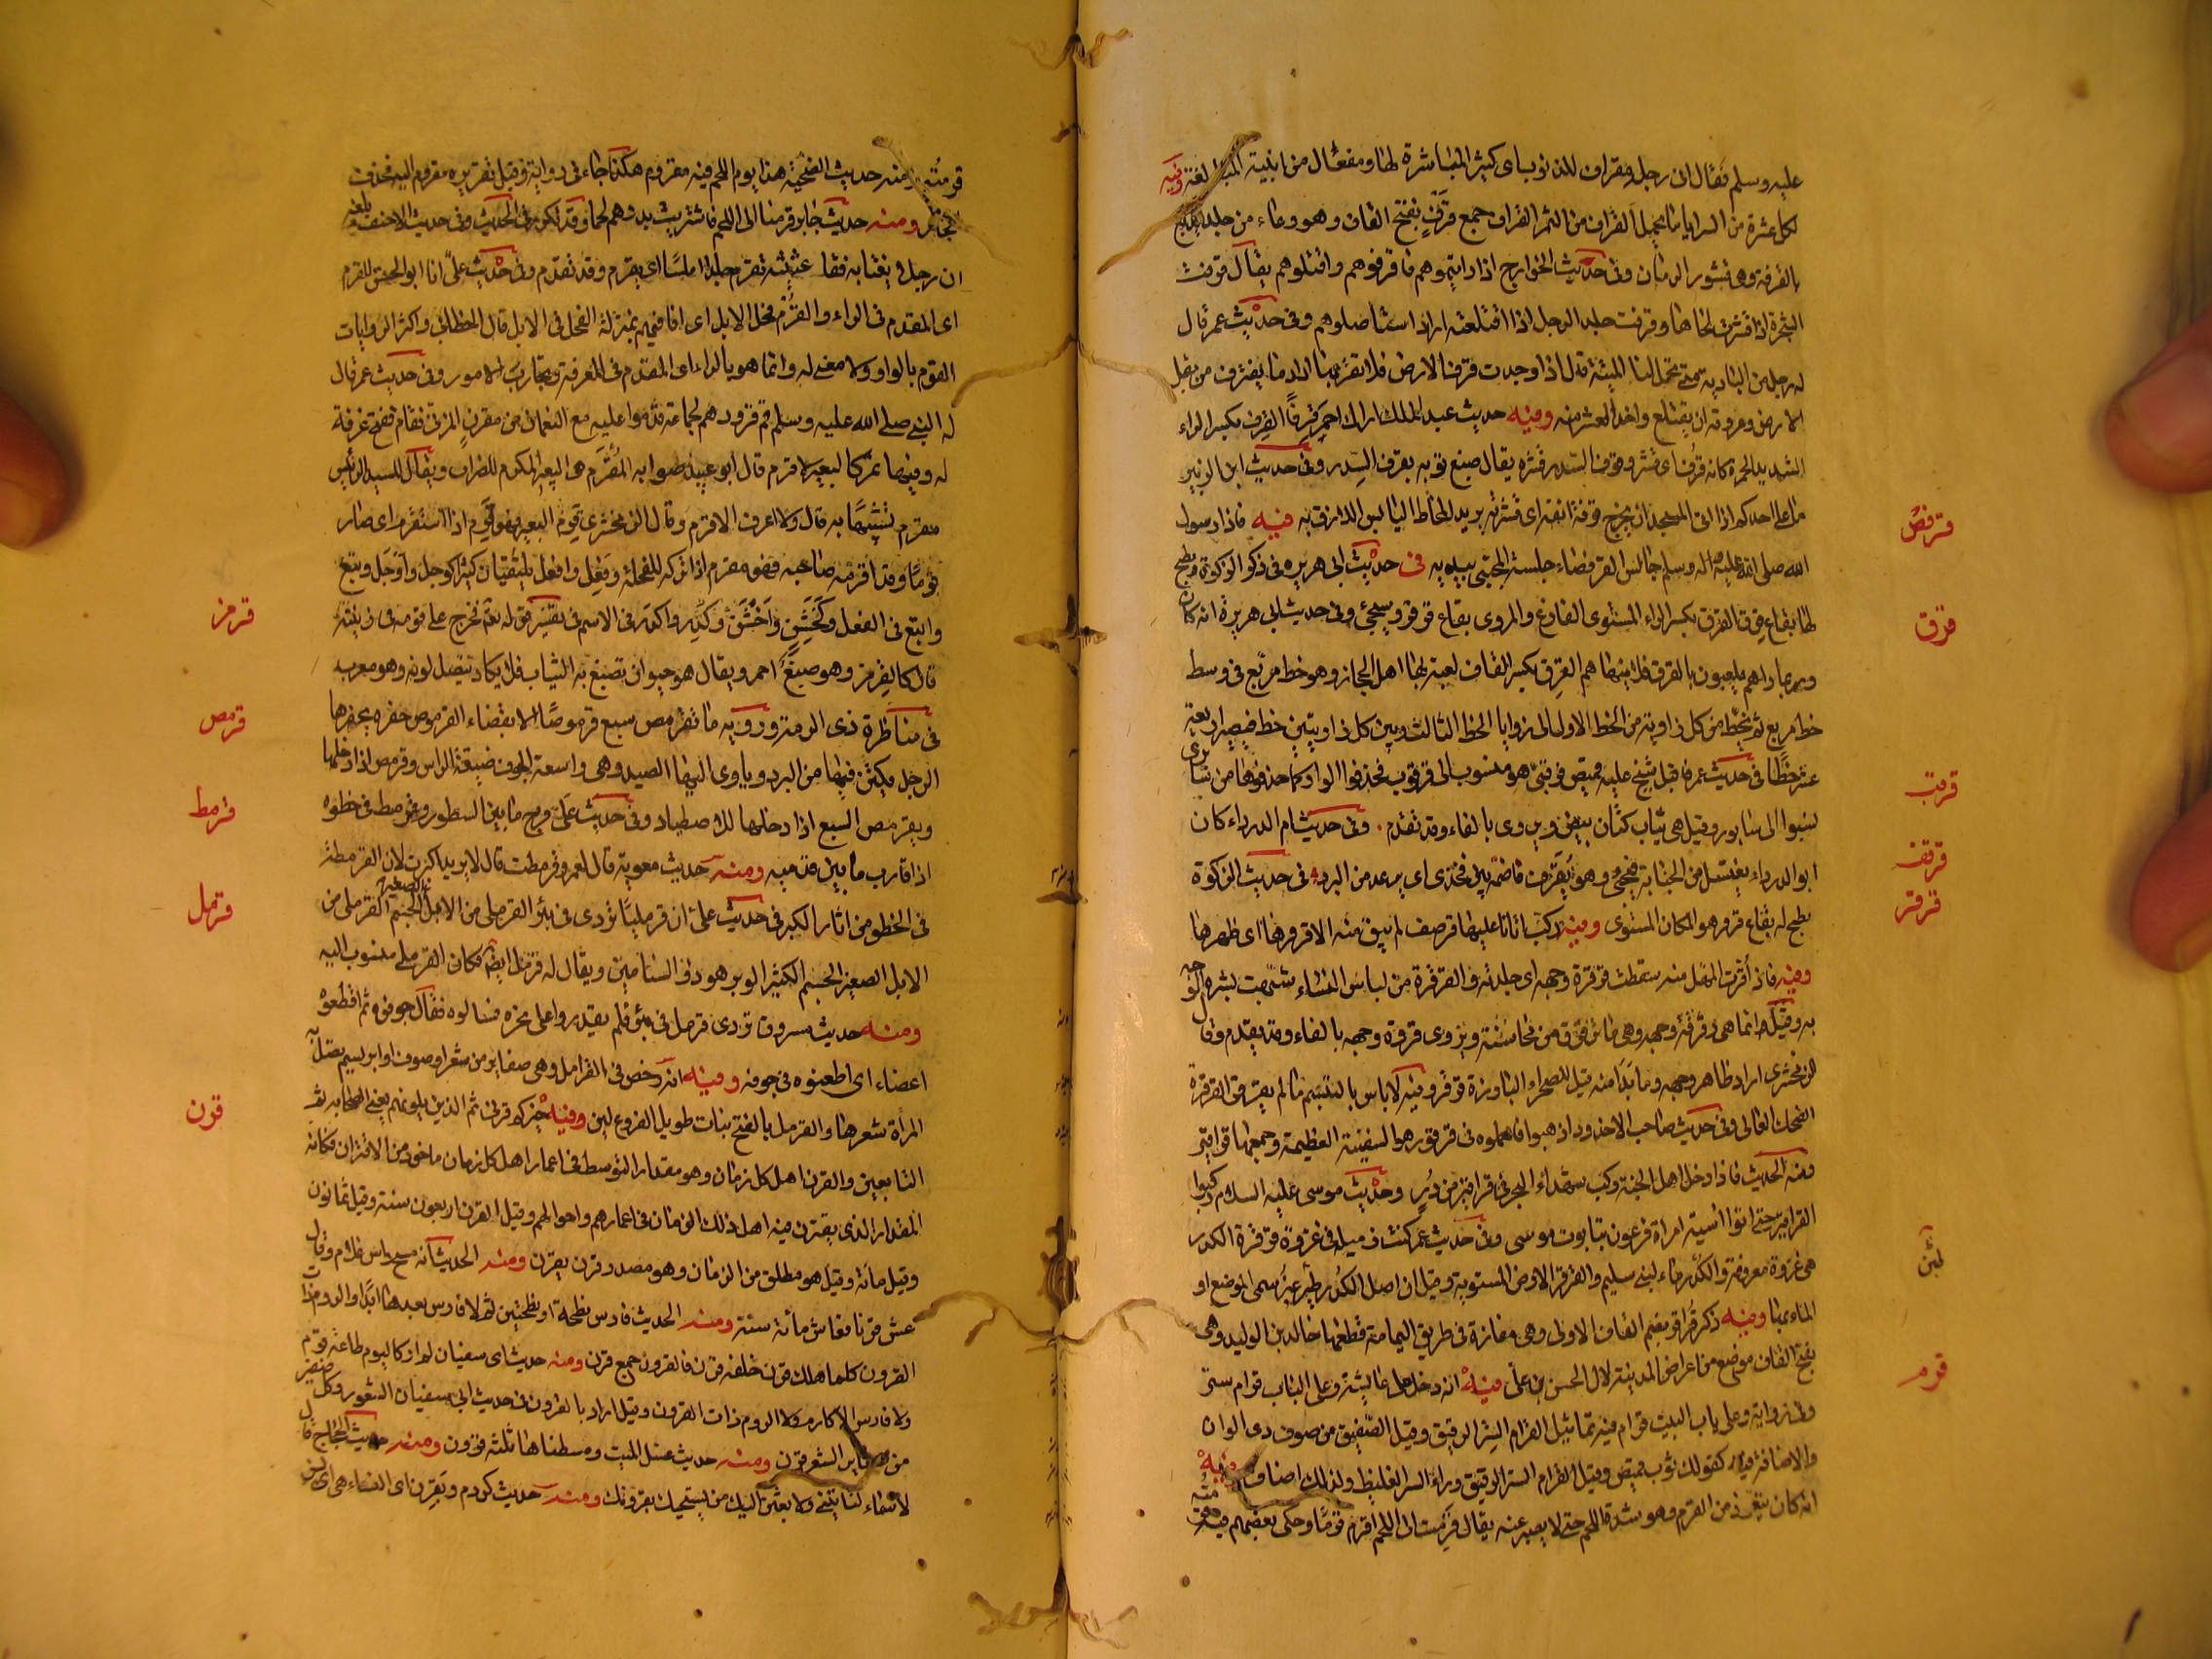 عليه وسلم فقال انى رجل مقراف للذنوب اى كثير المباشرة لها ومفعال من ابنية المبالغة وفيه
لكل عشرة من السرايا ما يحمل القراف من التمر القراف جمع قرف بفتح القاف وهو وعاء من جلد يدبغ
بالقرفة وهى قشور الرمان وفى حديث الخوارج اذا رايتموهم فاقرفوهم واقتلوهم يقال قرفت
الشجرة اذا قشرت لحاها وقرفت جلد الرجل اذا اقتلعته اراد استأصلوهم وفى حديث عمر قال
له رجل من البادية متى تحل لنا الميتة قال اذا وجدت قرف الارض فلا تقربها اراد ما يقترف من بقل
الارض وعروقه ان يقتلع واخذ المعشر منه ومنه حديث عبد الملك اراك احمر قرفا القرف بكسر الراء
الشديد الحمرة كانه قرف اى قشر وقرف السدر قشره يقال صبغ ثوبه بقرف السدر وفى حديث ابن الزبير
ما على احدكم اذا اتى المسجد ان يخرج قرفة انفه اى قشرته يريد المخاط اليابس اللازق به فيه فاذا رسول
قرفص
الله صلى الله عليه واله وسلم جالس القرفصاء جلسة المحتبى بيديه فى حديث ابى هريره فى ذكر الزكوة وبطح
لها بقاع قرق القرق بكسر الراء المستوى الفارغ والمروى بقاع قرقر وسيجئ وفى حديث ابى هريرة انه كان
قرق
وربما راهم يلعبون بالقرق فلا ينهاهم القرق بكسر القاف لعبة لها اهل الحجاز وهو خط مربع فى وسط
خط مربع ثم يخط من كل زاوية من الخط الاول الى زوايا الخط الثالث وبين كل زاويتين خط فيصير اربعة
عشر خطا فى حديث عمر فاقبل شيخ عليه قميص قرقبى هو منسوب الى قرقوب فحذفوا الواو كما حذفوها من سابرى
قرقب
نسبوا الى سابور وقيل هى ثياب كتان بيض ويروى بالفاء وقد تقدم . وفى حديث ام الدرداء كان
ابو الدرداء يغتسل من الجنابة فيجئ وهو يقرقف فاضمه بين فخذى اى يرعد من البرد فى حديث الزكوة
قرقف
بطح له بقاع قرقر هو المكان المستوى وفيه ركب اتانا عليها قرصف لم يبق منه الا قرقرها اى ظهرها
قرقر
وفيه فاذا قرب المهل منه سقطت قرقرة وجهه اى جلدته والقرقرة من لباس النساء شبهت بشرة الوجه
به وقيل انما هى رقرقة وجهه وهى ما ترقرق من محاسنه ويروى فروة وجهه بالفاء وقد تقدم وقال
الزمخشرى اراد ظاهر وجهه وما بدا منه قيل للصحراء البارزة قرقر وفيه لا باس بالتبسم ما لم يقرقر القرقرة
الضحك العالى وفى حديث صاحب الاخدود اذهبوا فاحملوه فى قرقور هو السفينة العظيمة وجمعها قراقير
ومنه الحديث فاذا دخل اهل الجنة ركب شهداء البحر فى قراقير من در وحديث موسى عليه السلام ركبوا
القراقير حتى اتوا اسية امراة فرعون بتابوت موسى وفى حديث عمر كنت زميله فى غزوة قرقرة الكدر
هى غزوة معروفة والكدر ماء لبنى سليم والقرقر الارض المستوية وقيل ان اصل الكدر طير غبر سمى الموضع او
الماء بها وفيه ذكر قراقر بضم القاف الاولى وهى مفازة فى طريق اليمامة قطعها خالد بن الوليد وهى
بفتح القاف موضع من اعراض المدينة لال الحسن بن على فيه انه دخل على عائشة وعلى الباب قرام ستر
قرم
وفى رواية وعلى باب البيت قرام فيه تماثيل القرام الستر الرقيق وقيل الصفيق من صوف ذى الوان
والاضافة فيه كقولك ثوب قميص وقيل القرام الستر الرقيق وراء الستر الغليظ ولذلك اضاف وفيه
انه كان يتعوذ من القرم وهو شدة اللحم حتى لا يصبر عنه يقال قرمت الى اللحم اقرم قرما وحكى بعضهم فيه
قرمته ومنه حديث الضحية هذا يوم اللحم فيه مقروم هكذا جاء فى رواية وقيل تقديره مقروم اليه فحذف
الجار ومنه حديث جابر قرمنا الى اللحم فاشتريت بدرهم لحما وقد تكرر فى الحديث وفى حديث الاحنف بلغه
ان رجلا يغتابه فقال عثيثة تقرم جلدا املسا اى يقرم وقد تقدم وفى حديث على انا ابو الحسن القرم
اى المقدم فى الراء والقرم فحل الابل اى انا فيهم بمنزلة الفحل فى الابل قال الخطابى واكثر الروايات
القوم بالواو ولا معنى له وانما هو بالراء اى المقدم فى المعرفة وتجارب الامور وفى حديث عمر قال
له النبى صلى الله عليه وسلم قم فزودهم لجماعة قدموا عليه مع النعمان بن مقرن المزنى فقام ففتح غرفة
له وفيها تمر كالبعير الاقرم قال ابو عبيد صوابه المقرم هو البعير المكرم للضراب ويقال للسيد الرئيس
مقرم تشبيها به قال ولا اعرف الاقرم وقال الزمخشرى قرم البعير فهو قرم اذا استقرم اى صار
قرما وقد اقرمه صاحبه فهو مقرم اذا تركه للفحلة وفعل وافعل يلتقيان كثيرا كوجل واوجل وتبع
واتبع فى الفعل وكخشن واخشن وكدر واكدر فى الاسم فى تفسير قوله تعالى فخرج على قومه فى زينته
قرمز
قال كالقرمز وهو صبغ احمر ويقال هو حيوان تصبغ به الثياب فلا يكاد ينصل لونه وهو معرب
فى مناظرة ذى الرمة ورؤبه ما تقرمص سبع قرموصا الا بقضاء القرموص حفره يحفرها
قرمص
الرجل يكتن فيها من البرد وياوى اليها الصيد وهى واسعة الجوف ضيقة الراس وقرمص اذا دخلها
وتقرمص السبع اذا دخلها للاصطياد وفى حديث على فرج ما بين السطور وقرمط فى خطوه
قرمط
اذا قارب ما بين قدميه ومنه حديث معوية قال لعمرو قرمطت قال لا يريد اكبرت لان القرمطة
فى الخطو من اثار الكبر فى حديث على ان قرمليا تردى فى بئر القرملى من الابل الصغير الجسم القرملى من
قرمل
الابل الصغير الجسم الكثير الوبر هو ذو السنامين ويقال له قرمل ايضا فكان القرملى منسوب اليه
ومنه حديث مسروق تردى قرمل فى بئر فلم يقدروا على نحره فسالوه فقال جوفوه ثم اقطعوه
اعضاء اى اطعنوه فى جوفه وفيه انه رخص فى القرامل وهى ضفاير من شعر او صوف او ابريسم تصل به
المراة شعرها والقرمل بالفتح نبات طويل الفروع لين وفيه خيركم قرنى ثم الذين يلونهم يعنى الصحابه ثم
قرن
التابعين والقرن اهل كل زمان وهو مقدار التوسط فى اعمار اهل كل زمان ماخوذ من الاقتران فكانه
المقدار الذى يقترن فيه اهل ذلك الزمان فى اعمارهم واحوالهم وقيل القرن اربعون سنة وقيل ثمانون
وقيل مائة وقيل هو مطلق من الزمان وهو مصدر قرن يقرن ومنه الحديث انه مسح راس غلام وقال
عش قرنا فعاش مائة سنة ومنه الحديث فارس نطحة او نطحتين ثم لا فارس بعدها ابدا والروم ذات
القرون كلما هلك قرن خلفه قرن فالقرون جمع قرن ومنه حديث ابى سفيان لم ار كاليوم طاعة قوم
ولا فارس الاكارم ولا الروم ذات القرون وقيل اراد بالقرون فى حديث ابى سفيان الشعور وكل ضفيرة
من ضفاير الشعر قرن ومنه حديث غسل الميت ومشطناها ثلثة قرون ومنه حديث الحجاج قال
لاسماء لتاتينى ولا بعثن اليك من يسحبك بقرونك ومنه حديث كردم وبقرن اى النساء هى اى بسن